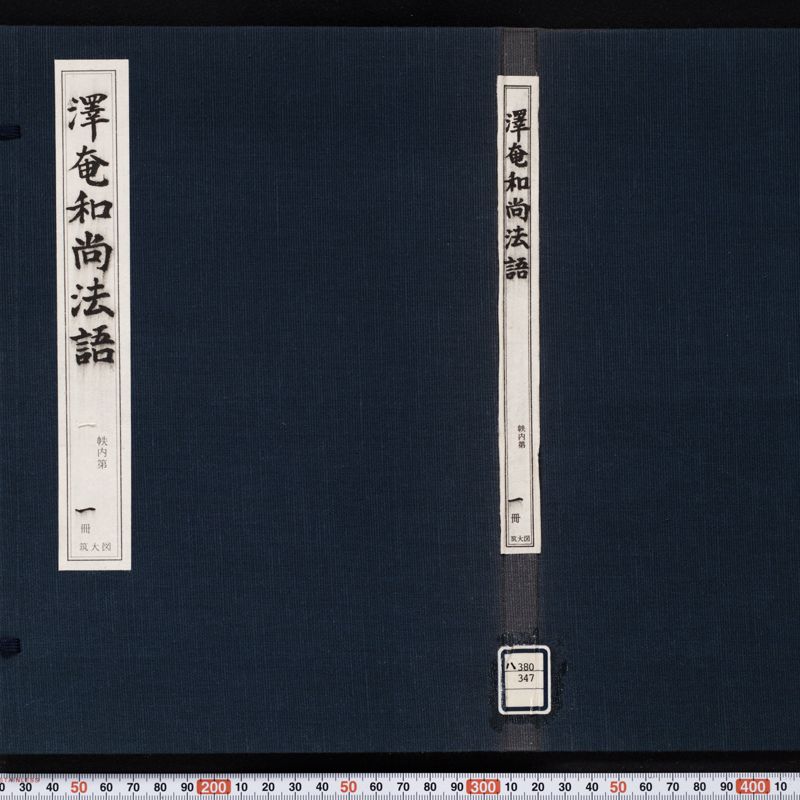 澤奄和尚法語
帙内第
一冊
筑大図
澤奄和尚法語
帙内第
一冊
筑大図
ハ380
347
STAINLESS
20 30 40 50 60 70 80 90 200 10 20 30 40 50 60 70 80 90 300 10 20 30 40 50 60 70 80 90 400 10